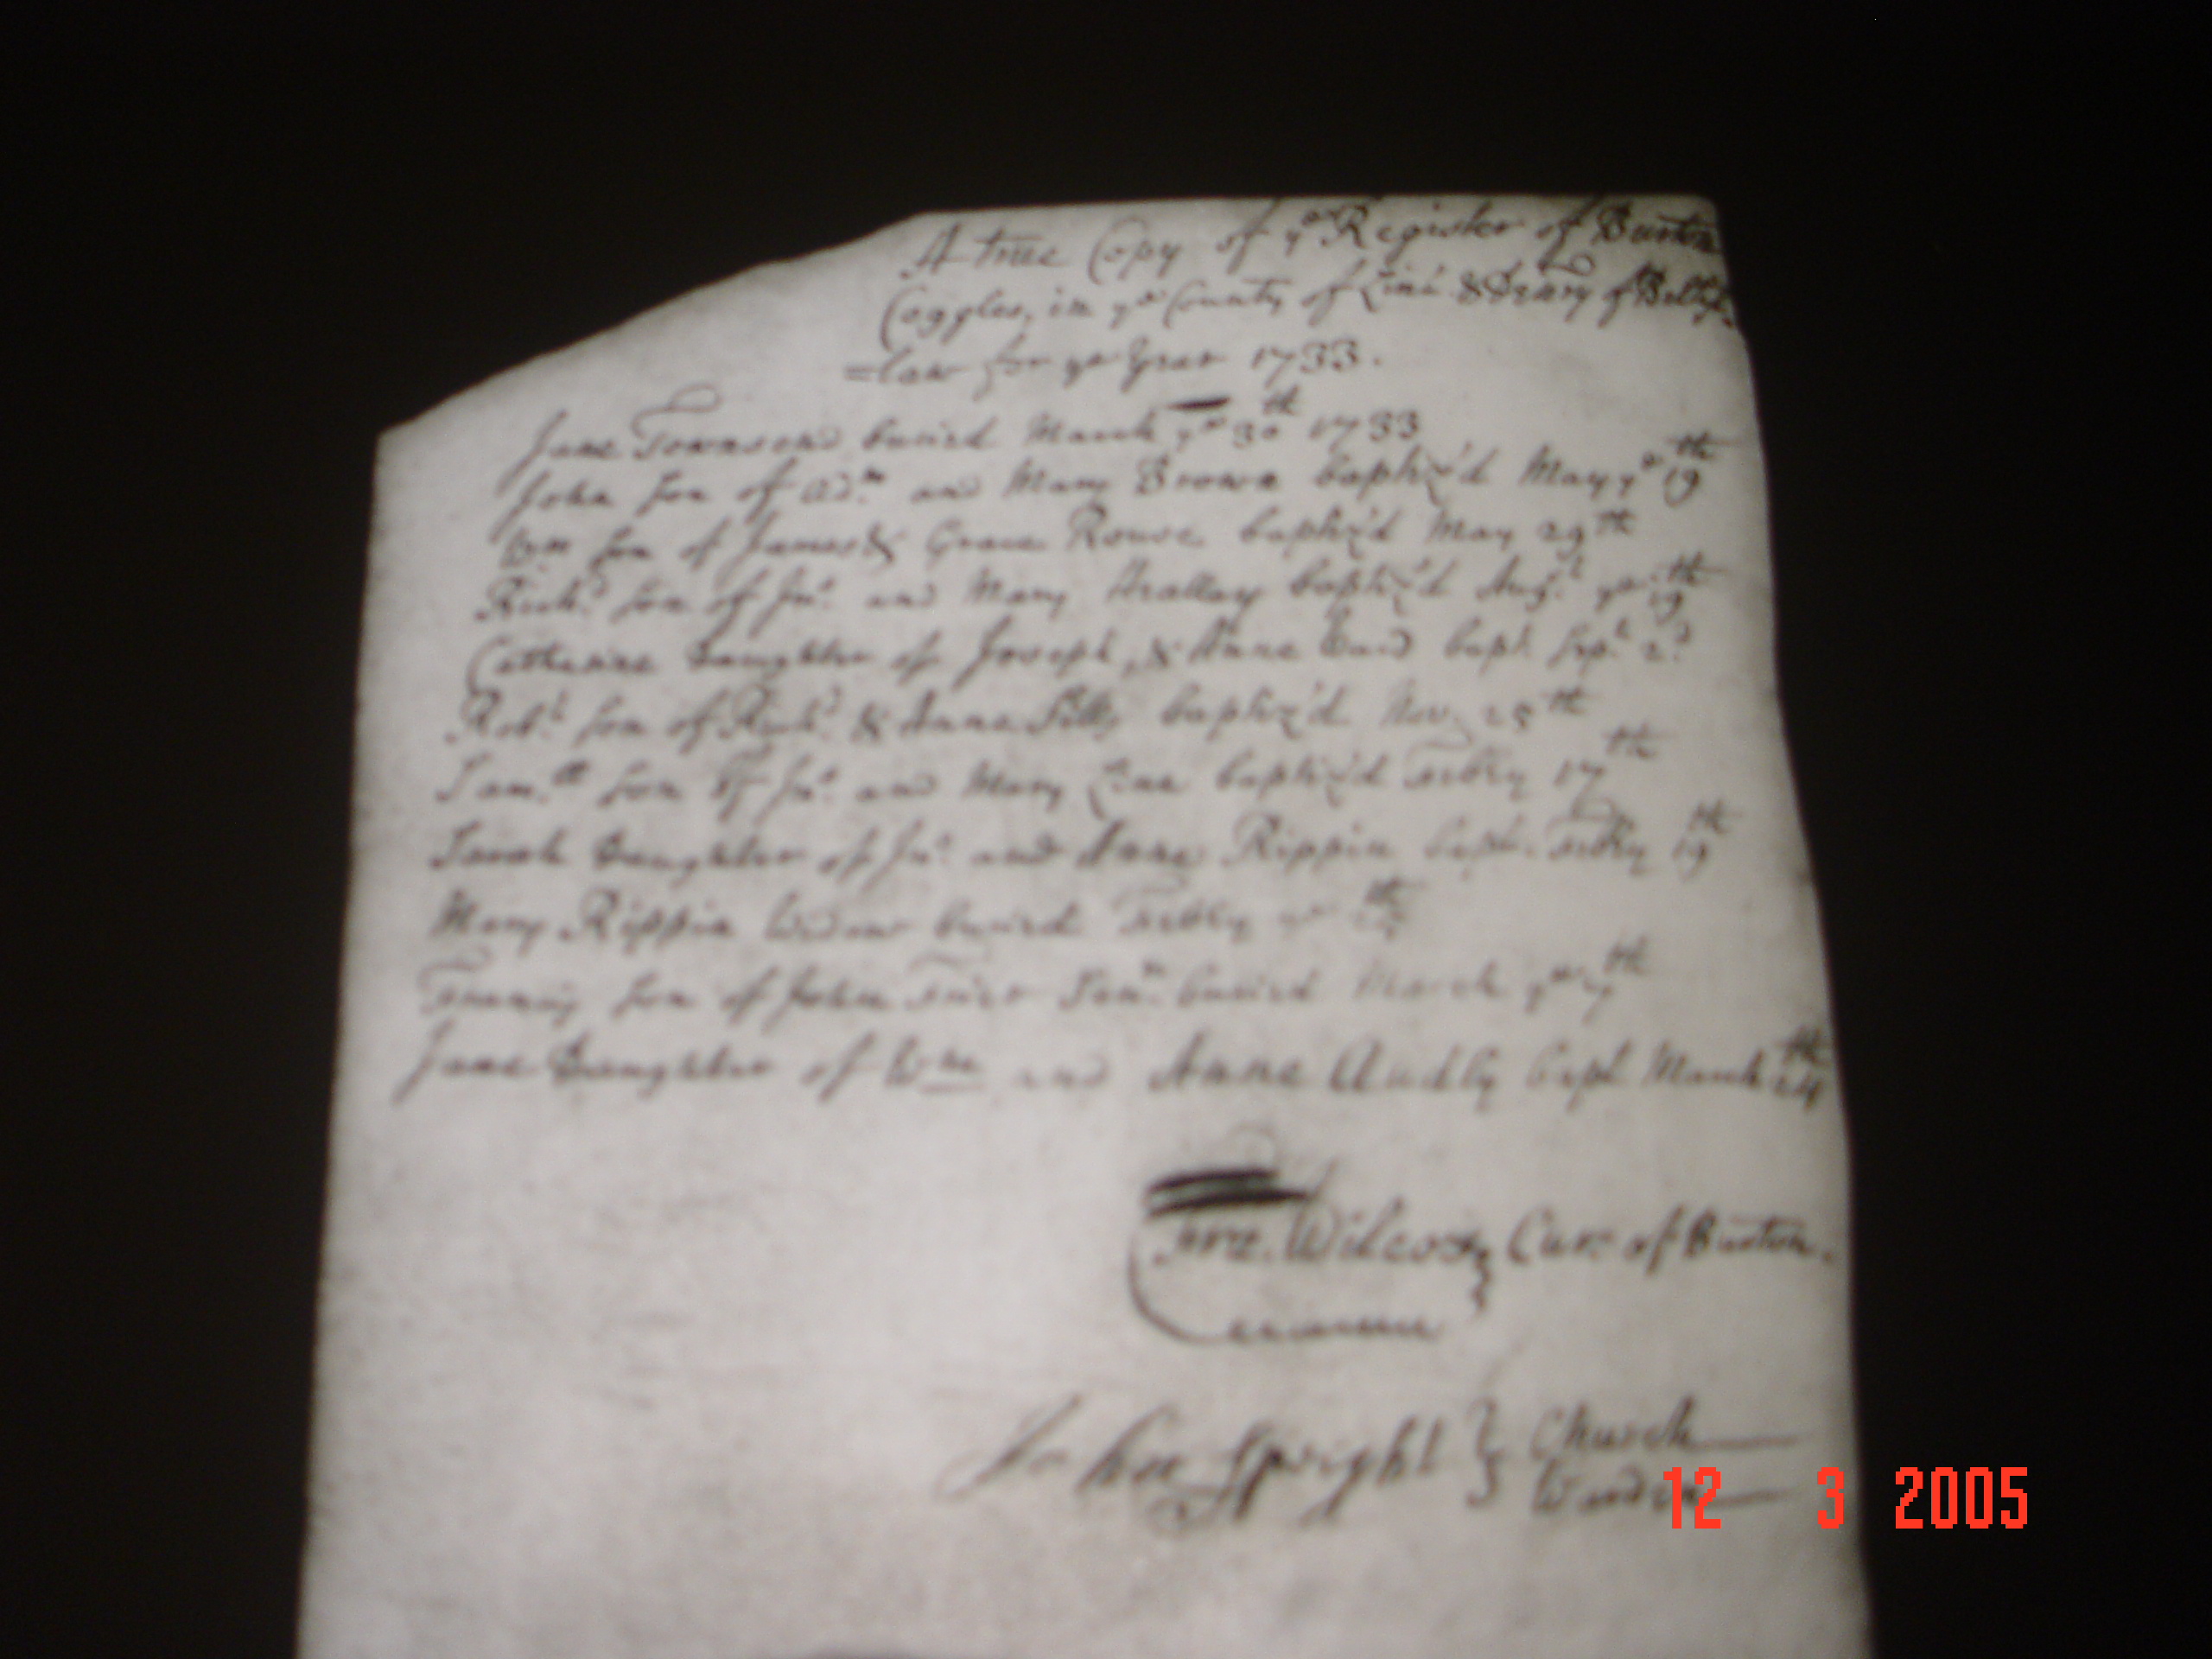 A true Copy of ye Register of Burton
Coggles, in ye County of Linc: & Deanry of Beltis
=law for ye Year 1733.
Jane Townsend buried March ye 30th 1733
John Son of Adm and Mary Brown baptiz'd May ye 19th
Wm Son of James & Grace Rouse baptiz'd May 29th
Richd Son of Jno and Mary baptiz'd Augt ye 19th
Catherine Daughter of Joseph & Anne bapt Sept 2d
Robt Son of Richd & Anne Sills baptiz'd Nov 25th
Samll Son of Jno and Mary baptiz'd Febry 17th
Sarah Daughter of Jno and Anne Rippin bapt Febry 19th
Mary Rippin Widow buried Febry ye
Francis Son of John Senr buried March ye 7th
Jane Daughter of Wm and Anne Audly bapt March 24th
Wilcox Cure of Burton.
John Spright Church
Warden
12 3 2005